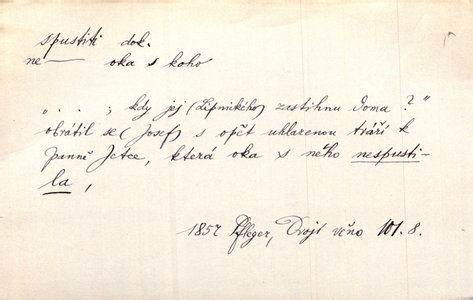 spustiti dok.
ne—— oka s koho
„. . . ; kdy jej (Lipnického) zastihnu doma?"
obrátil se (Josef) s opět uhlazenou tváří k
panně Jetce, která oka s něho nespusti-
la,
1857 Pfleger, Dvojí věno 101. 8.